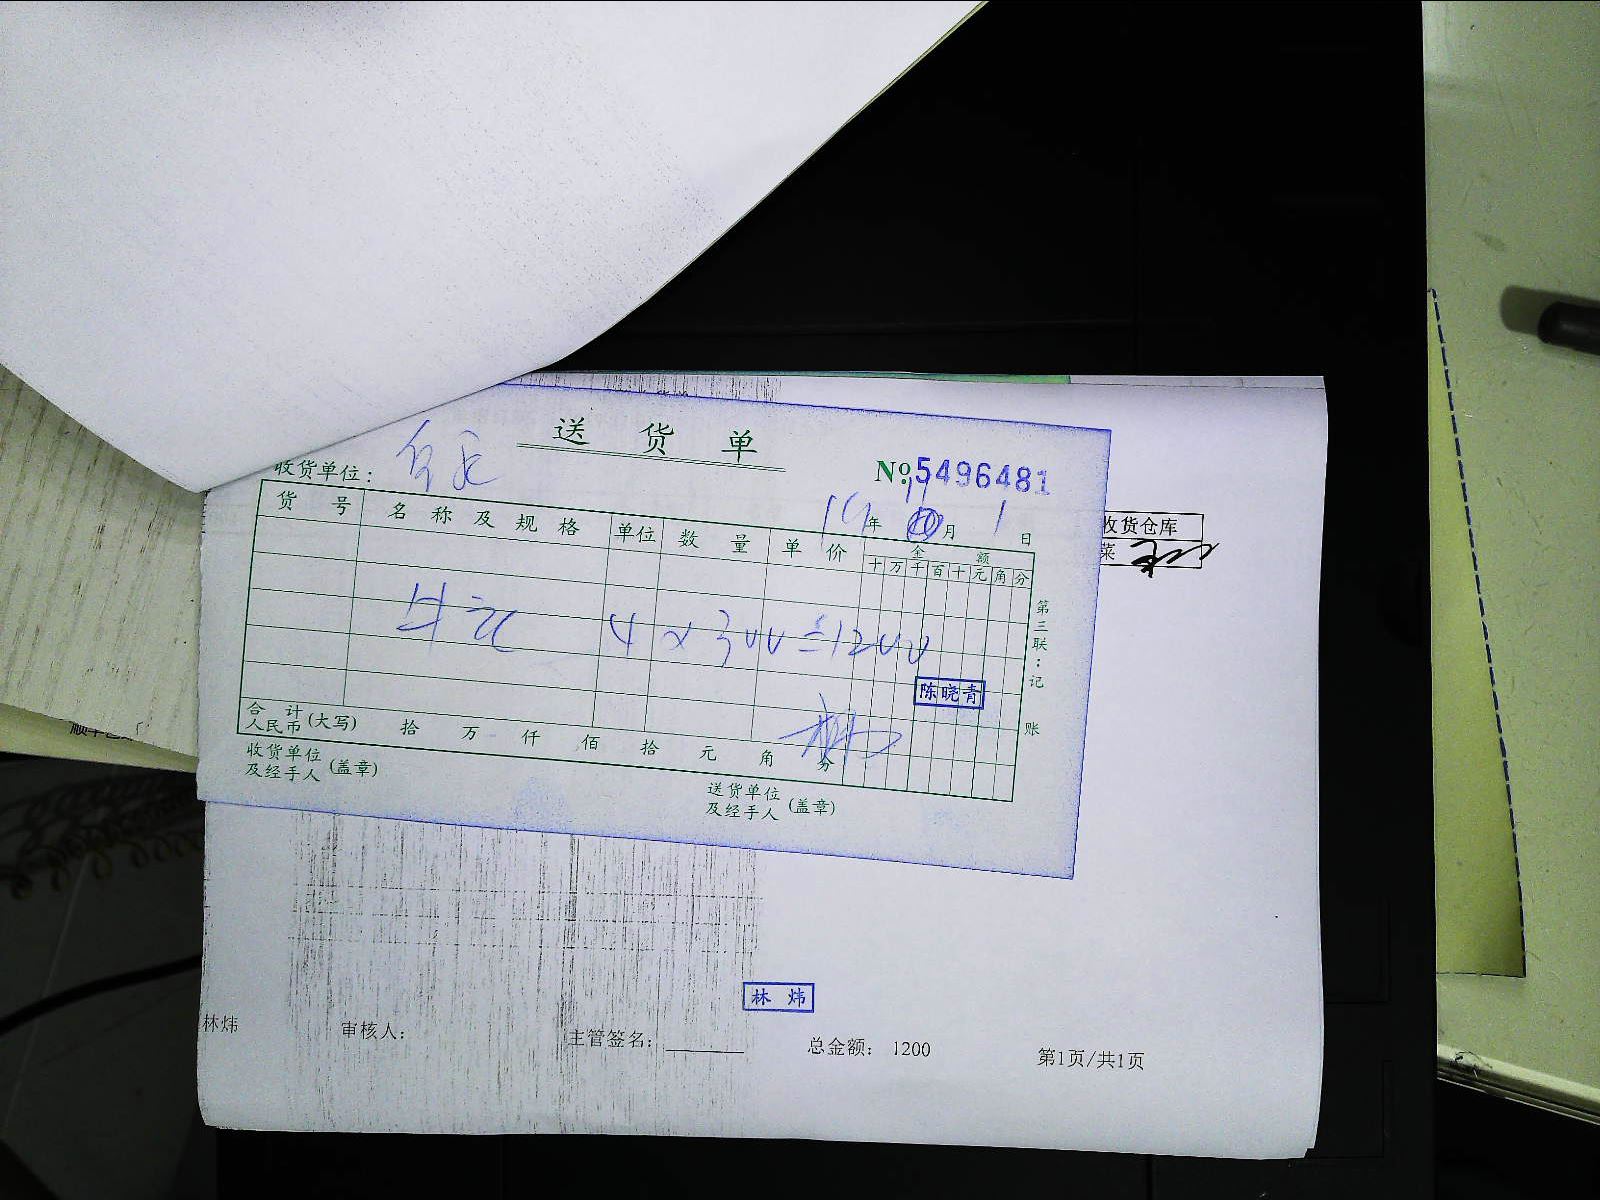 送 货 单
收货单位：
No 5496481
19年 11月 1日
货 号 名 称 及 规 格 单位 数 量 单 价 金 额
十 万 千 百 十 元 角 分
4 × 300 = 1200
陈晓青
合 计
人民币(大写) 拾 万 仟 佰 拾 元 角 分
收货单位
及经手人 (盖章)
送货单位
及经手人 (盖章)
第三联：记账
收货仓库
菜
林 炜
林炜 审核人： 主管签名： 总金额： 1200 第1页/共1页